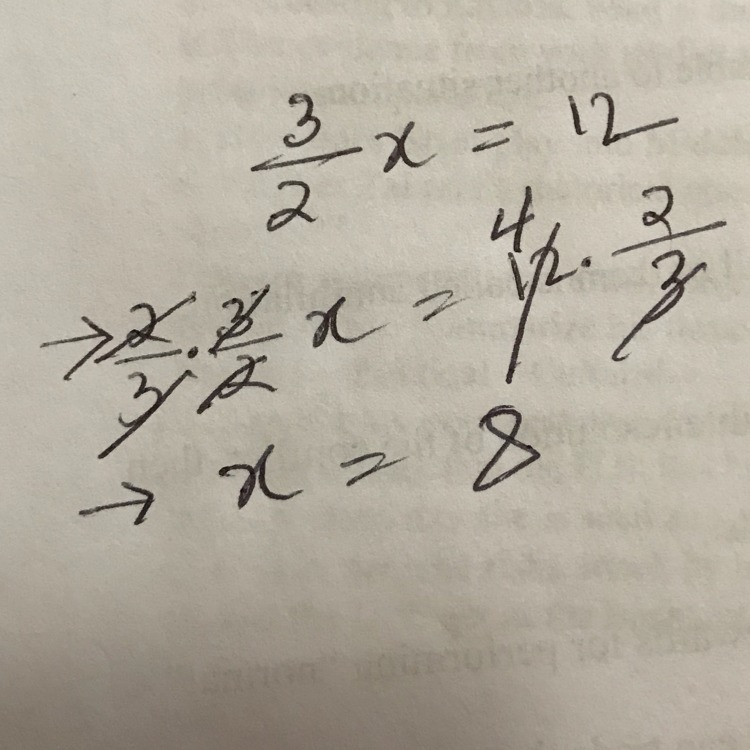 3/2 x = 12
→ 2/3 · 3/2 x = 4 12 · 2/3
→ x = 8